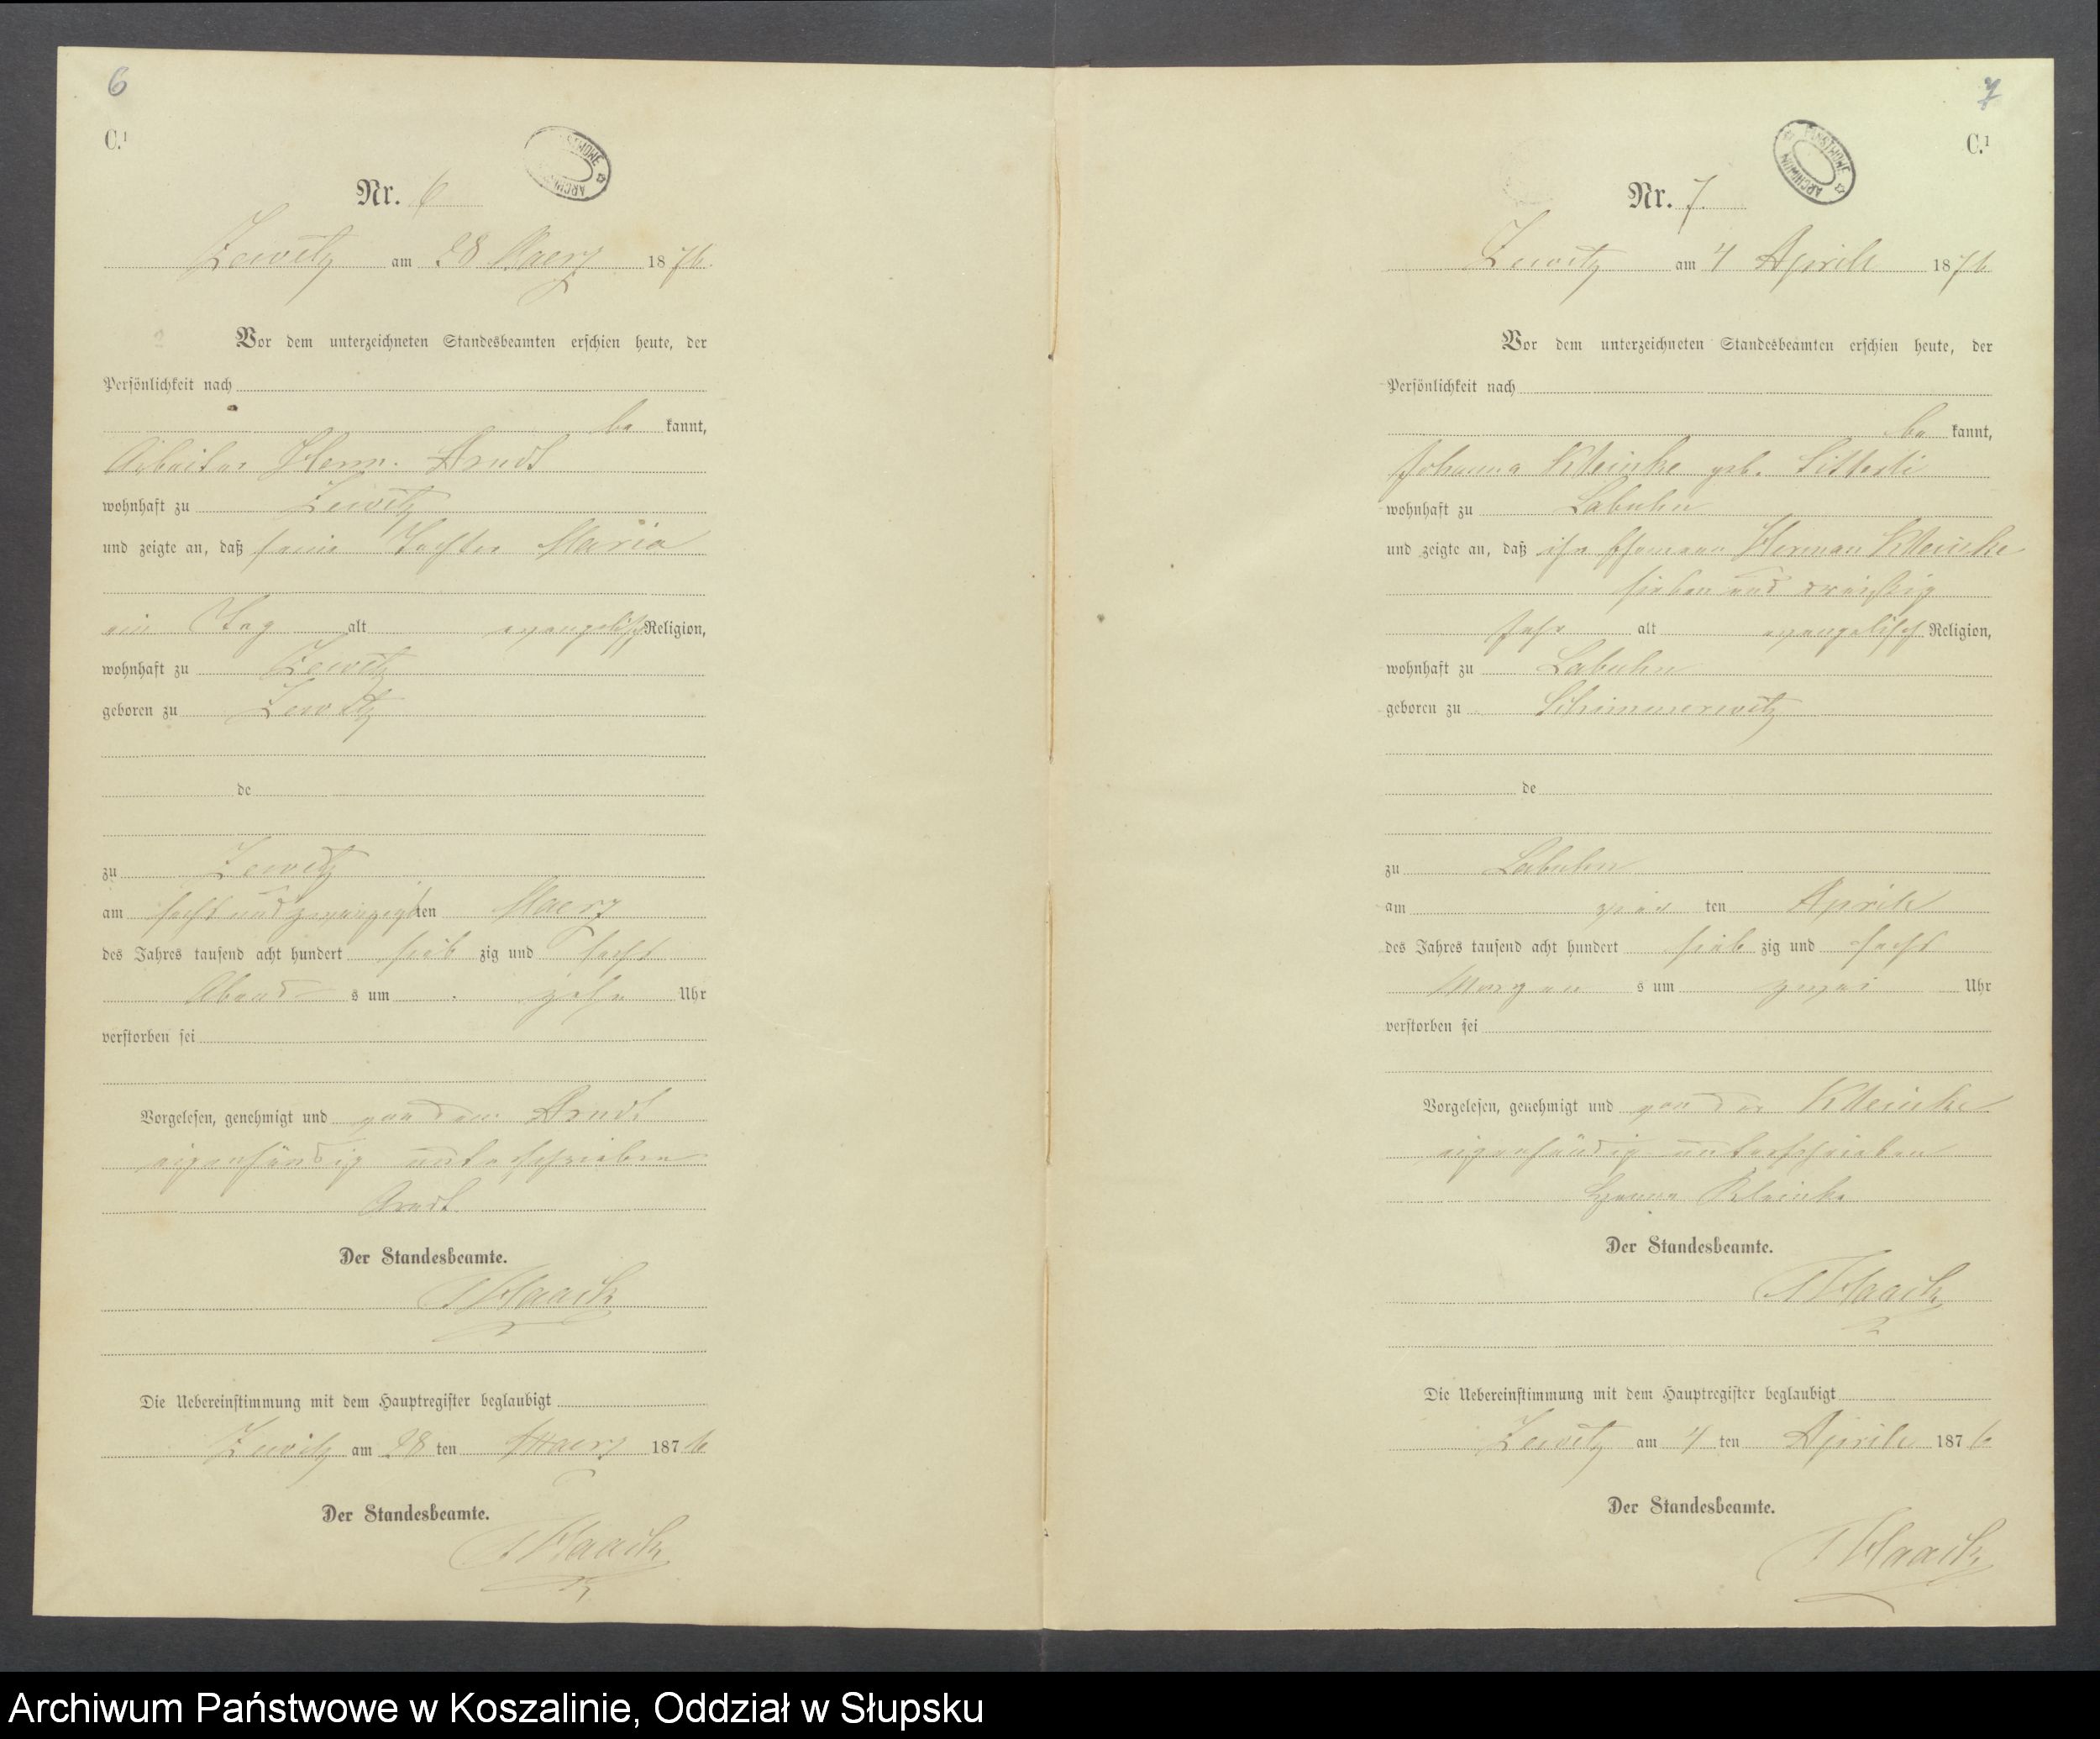 6
C.¹
Nr. 6
Zewitz am 28 Maerz 1876.
Vor dem unterzeichneten Standesbeamten erschien heute, der
Persönlichkeit nach
be kannt,
Arbeiter Herm. Arndt
wohnhaft zu Zewitz
und zeigte an, daß seine Tochter Maria
ein Tag alt evangelisch Religion,
wohnhaft zu Zewitz
geboren zu Zewitz
de
zu Zewitz
am sechs und zwanzigsten Maerz
des Jahres tausend acht hundert sieb zig und sechs
Abend s um zehn Uhr
verstorben sei
Vorgelesen, genehmigt und von dem Arndt
eigenhändig unterschrieben
Arndt.
Der Standesbeamte.
Haack
Die Uebereinstimmung mit dem Hauptregister beglaubigt
Zewitz am 28 ten Maerz 1876
Der Standesbeamte.
Haack
7
C.¹
ARCHIWUM PAŃSTWOWE
Nr. 7.
Zewitz am 4 Aprile 1876
Vor dem unterzeichneten Standesbeamten erschien heute, der
Persönlichkeit nach
be kannt,
Johanna Kleinke geb.
wohnhaft zu Labuhn
und zeigte an, daß ihr Ehemann Herman Kleinke
sieben und dreißig
Jahr alt evangelisch Religion,
wohnhaft zu Labuhn
geboren zu Schimmerwitz
de
zu Labuhn
am ten Aprile
des Jahres tausend acht hundert sieb zig und sechs
Morgen s um zwei Uhr
verstorben sei
Vorgelesen, genehmigt und von der Kleinke
eigenhändig unterschrieben
Kleinke
Der Standesbeamte.
Haack
Die Uebereinstimmung mit dem Hauptregister beglaubigt
Zewitz am 4 ten Aprile 1876
Der Standesbeamte.
Haack
Archiwum Państwowe w Koszalinie, Oddział w Słupsku